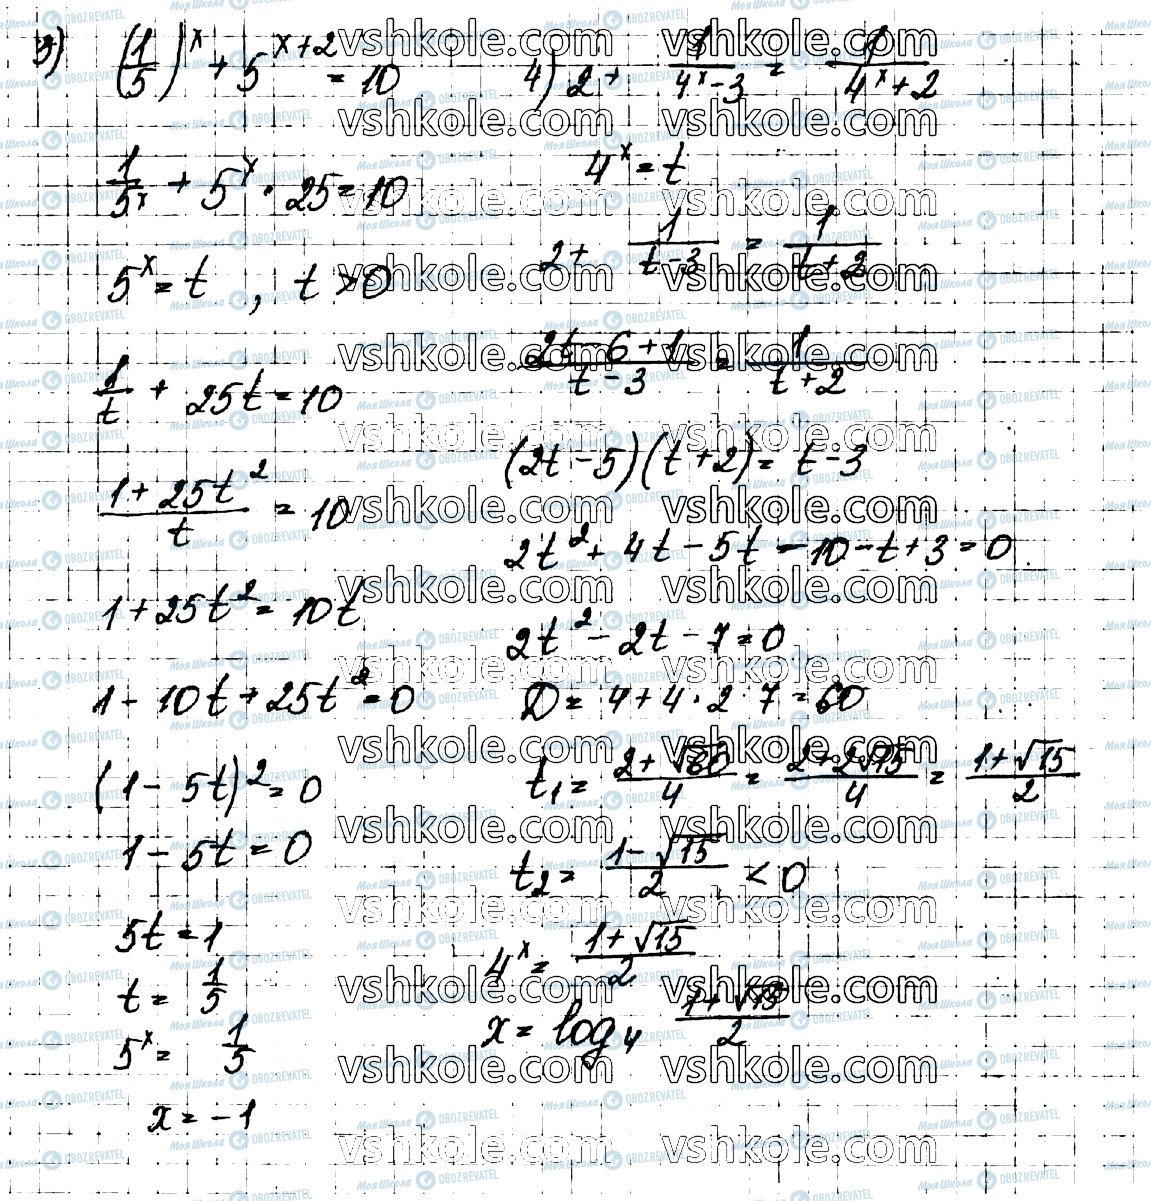 3) (1/5)^x + 5^(x+2) = 10
1/5^x + 5^x · 25 = 10
5^x = t , t > 0
1/t + 25t = 10
(1 + 25t^2)/t = 10
1 + 25t^2 = 10t
1 - 10t + 25t^2 = 0
(1 - 5t)^2 = 0
1 - 5t = 0
5t = 1
t = 1/5
5^x = 1/5
x = -1
4) 2 + 1/(4^x - 3) = 1/(4^x + 2)
4^x = t
2 + 1/(t - 3) = 1/(t + 2)
(2t - 6 + 1)/(t - 3) = 1/(t + 2)
(2t - 5)(t + 2) = t - 3
2t^2 + 4t - 5t - 10 - t + 3 = 0
2t^2 - 2t - 7 = 0
D = 4 + 4 · 2 · 7 = 60
t1 = (2 + √60)/4 = (2 + 2√15)/4 = (1 + √15)/2
t2 = (1 - √15)/2 < 0
4^x = (1 + √15)/2
x = log4 (1 + √15)/2
vshkole.com
Моя Школа
OBOZREVATEL